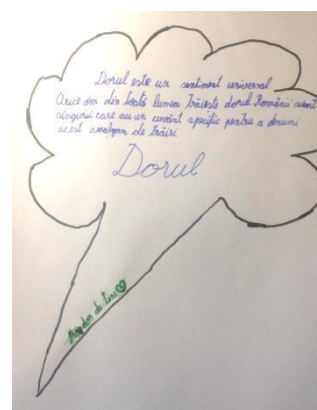 Dorul este un sentiment universal
Orice om din toată lumea trăiește dorul. Românii sunt
singurii care au un cuvânt specific pentru a denumi
acest amalgam de trăiri
Dorul
Mi-e dor de tine